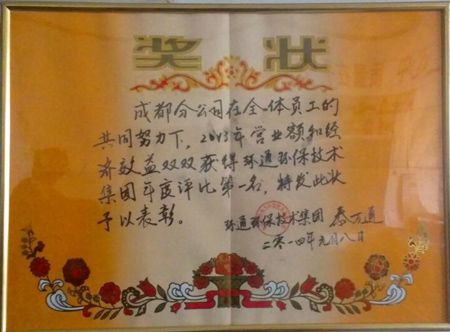 奖状
成都分公司在全体员工的
共同努力下，2013年营业额和经
济效益双双获得环通环保技术
集团年度评比第一名，特发此状
予以表彰。
环通环保技术集团
二〇一四年元月八日